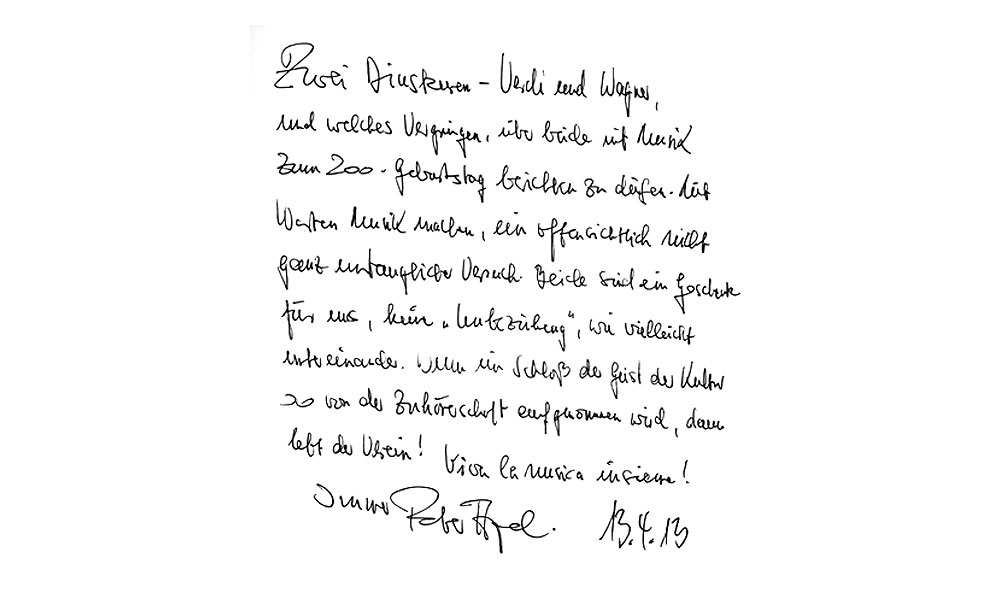 Zwei Dioskuren – Verdi und Wagner,
und welches Vergnügen, über beide mit Musik
zum 200. Geburtstag berichten zu dürfen. Mit
Worten Musik machen, ein offensichtlich nicht
ganz untauglicher Versuch. Beide sind ein Geschenk
für uns, keine „Unbeziehung“, wie vielleicht
untereinander. Wenn im Schloß der Geist der Kultur
so von der Zuhörerschaft aufgenommen wird, dann
lebt der Verein! Viva la musica insieme!
Immer 13.4.13